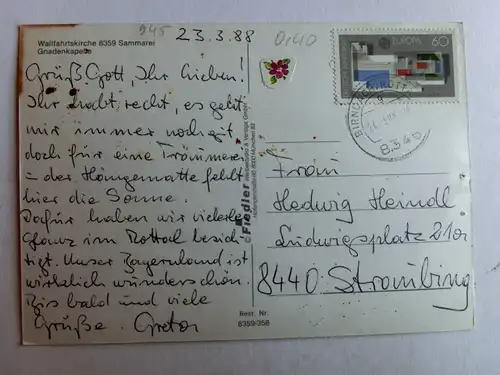 945
23.3.88
0,40
Wallfahrtskirche 8359 Sammarei
Gnadenkapelle
Grüß Gott, Ihr Lieben!
Ihr habt recht, es geht
mir immer noch gut,
doch für eine Träumerei
in der Hängematte fehlt
hier die Sonne.
Dafür haben wir vielerlei
Glanz im Rottal besich-
tigt. Unser Bayernland ist
wirklich wunderschön.
Bis bald und viele
Grüße. Greta
© Fiedler
EUROPA
60
BIRNBACH
8345
Frau
Hedwig Heindl
Ludwigsplatz 21
8440 Straubing
Best. Nr.
8359/358